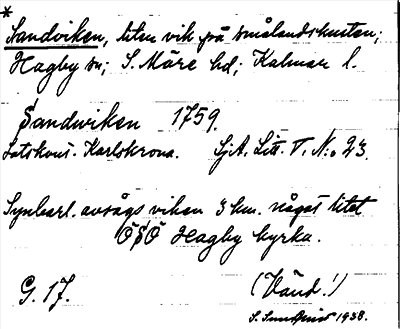 *
Sandviken, liten vik på smålandskusten;
Hagby sn; S. Möre hd; Kalmar l.
Sandwiken 1759.
Lotskont. Karlskrona. SjA. Litt. V. N:o 23.
Synbarl. avsågs viken 3 km. något litet
ÖSÖ Hagby kyrka.
G. 17. (Vänd!)
S. 1938.